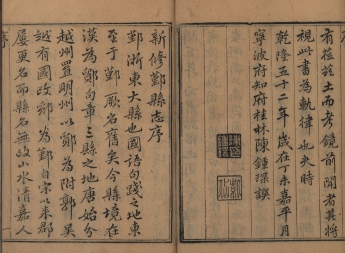 有莅茲土而考鏡前聞者其將
視此書為軌律也夫時
乾隆五十二年歲在丁未嘉平月
寧波府知府桂林陳鍾琛譔
新修鄞縣志序
鄞浙東大縣也國語句踐之地東
至于鄞厥名舊矣今縣境在
漢為鄮句章三縣之地唐始分
越州置明州以鄮為附郭吳
越有國改鄮為鄞自宋以來郡
屢更名而縣名無改山水清嘉人
序
一